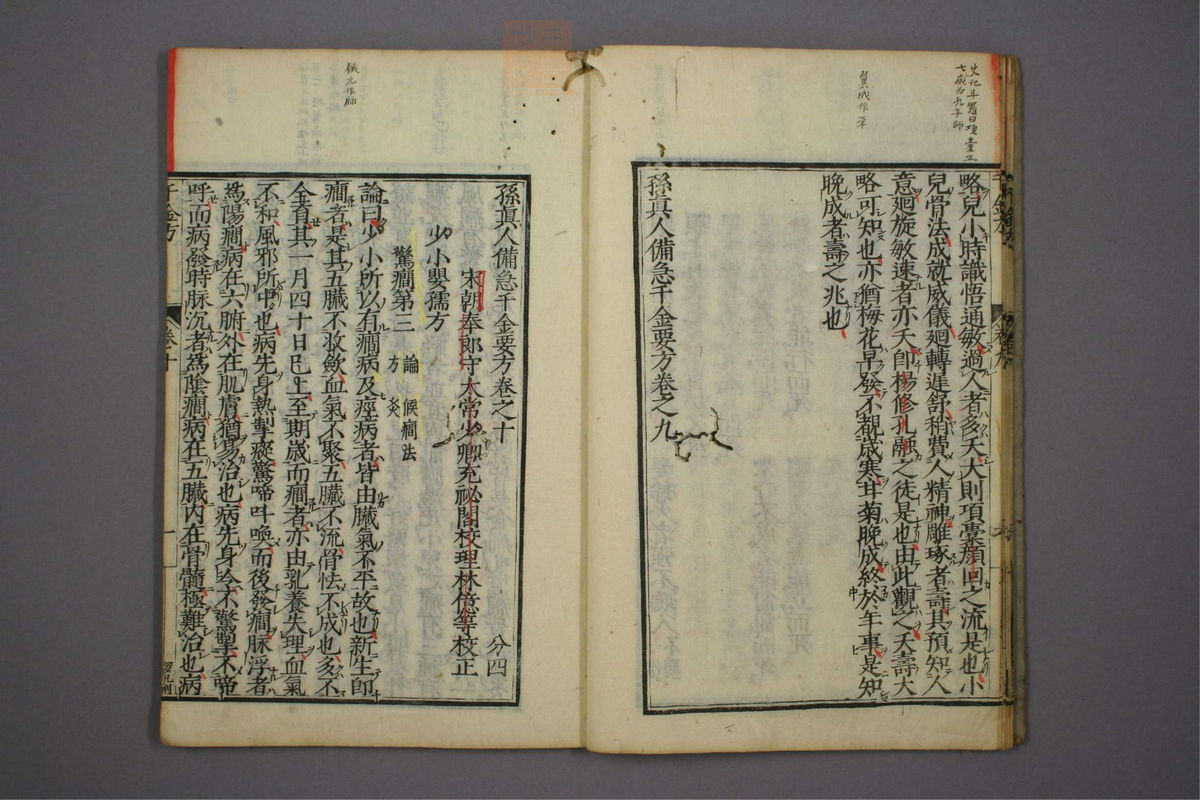 史記甘羅曰項橐生
七歳為孔子師
略兒小時識悟通敏過人者多夭大則項橐顔回之流是也小
兒骨法成就威儀廻轉遲舒稍費人精神雕琢者壽其預知人
意廻旋敏速者亦夭卽楊修孔融之徒是也由此觀之夭壽大
略可知也亦猶梅花早發不覩歳寒甘菊晚成終於年事是知
晚成者壽之兆也
孫真人備急千金要方卷之九
孫真人備急千金要方卷之十
分四
宋朝奉郎守太常少卿充祕閣校理林億等校正
少小嬰孺方
驚癇第三
論
候癇法
方
灸
論曰少小所以有癇病及痓病者皆由臟氣不平故也新生卽
癇者是其五臟不收歛血氣不聚五臟不流骨怯不成也多不
全育其一月四十日已上至期歳而癇者亦由乳養失理血氣
不和風邪所中也病先身熱掣瘲驚啼叫喚而後發癇脉浮者
爲陽癇病在六腑外在肌膚猶易治也病先身冷不驚掣不啼
呼而病發時脉沉者爲陰癇病在五臟内在骨髓極難治也病
千金方
卷十
一